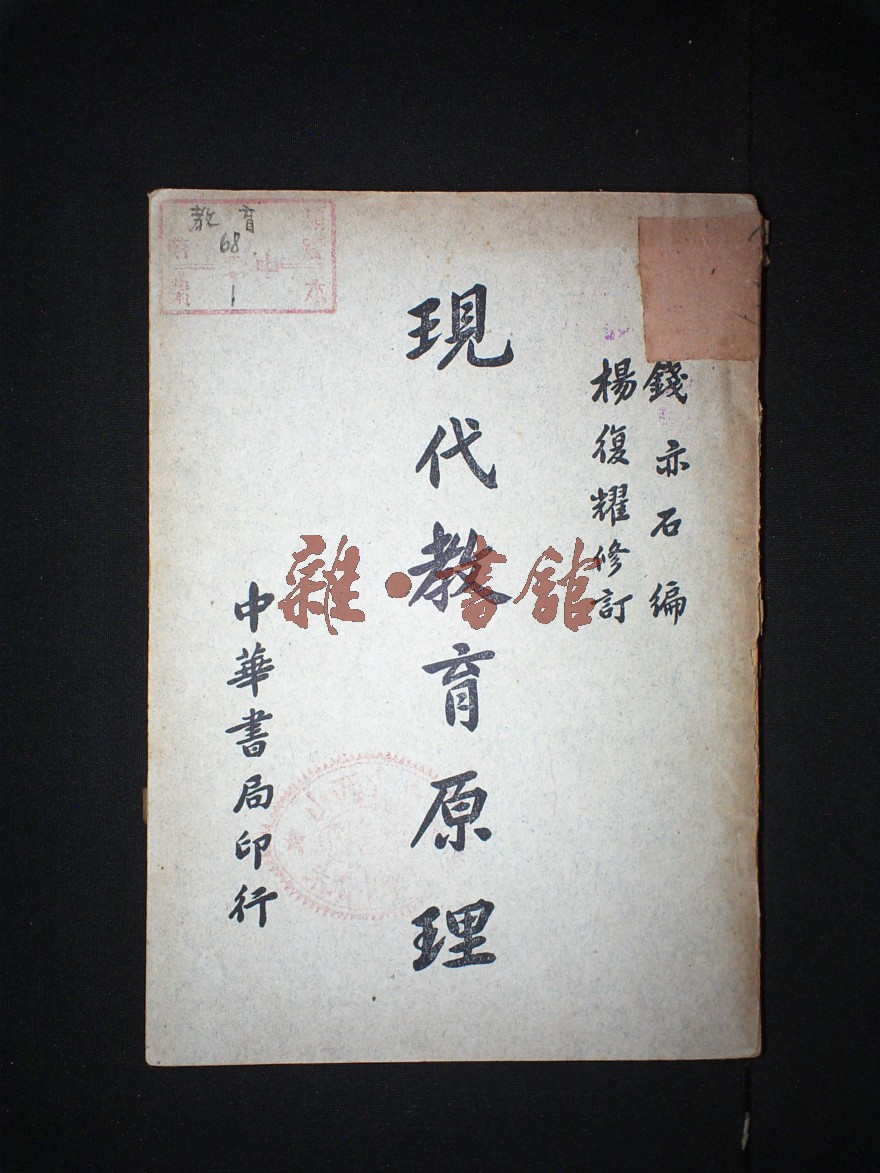 教育
68
1
錢亦石編
楊復耀修訂
現代教育原理
中華書局印行
雜·書館